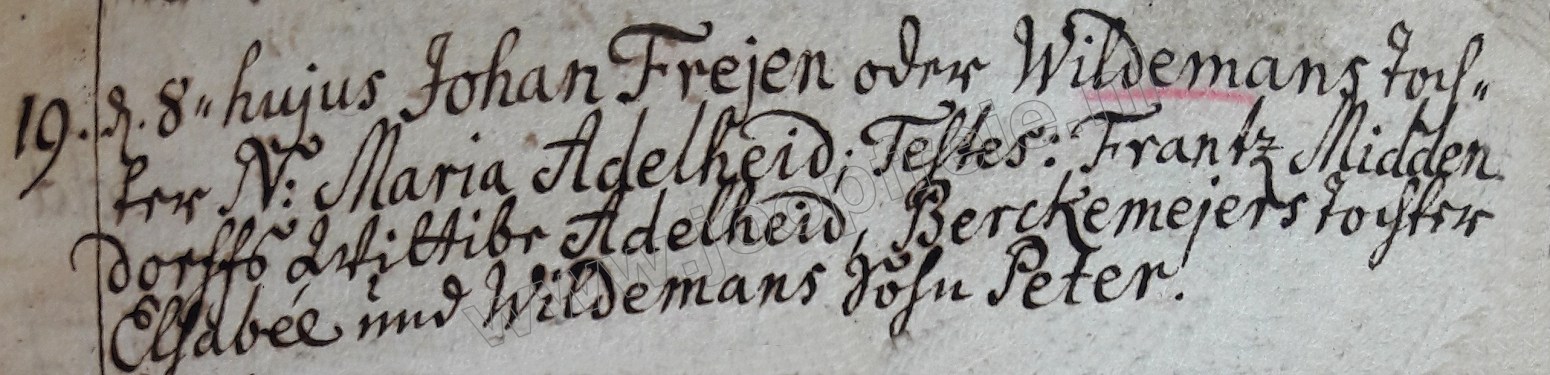 19. d. 8" hujus Johan Frejen oder Wildemans toch"
ter N: Maria Adelheid; Testes: Frantz Midden
dorffs Wittibe Adelheid, Berckemejers tochter
Elsabée und Wildemans Sohn Peter.